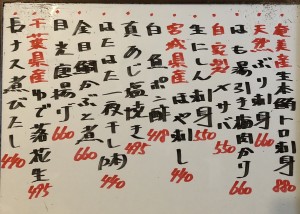 奄美産生本鮪トロ刺身 880
天然ぶり刺身 660
はも湯引き梅肉かけ 660
自家製〆サバ 550
生にしん刺身 550
宮城県産ほや刺し 440
白魚ポン酢 418
真あじ塩焼き 495
はたはた一夜干し(2尾) 440
金目鯛かぶと煮 660
目光唐揚げ 660
千葉県産ゆで落花生 495
長ナス煮びたし 440